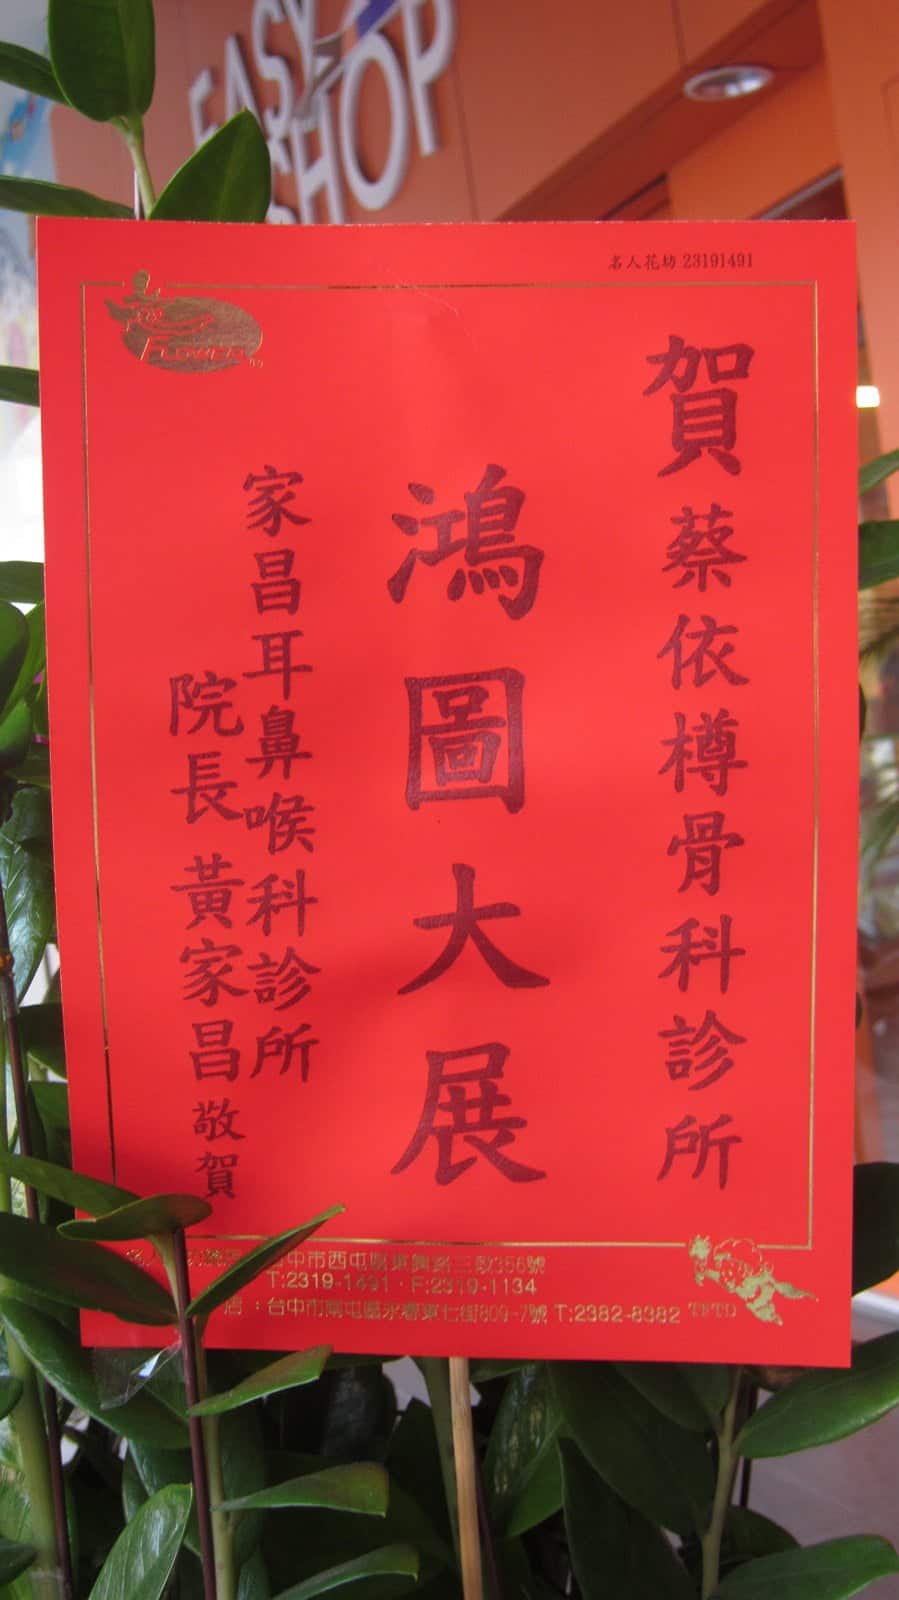 EASY
SHOP
名人花坊 23191491
FLOWER
賀 蔡依樽骨科診所
鴻圖大展
家昌耳鼻喉科診所
院長 黃家昌 敬賀
台中市西屯區東興路三段356號
T:2319-1491·F:2319-1134
店：台中市南屯區永春東七街809-7號 T:2382-8382